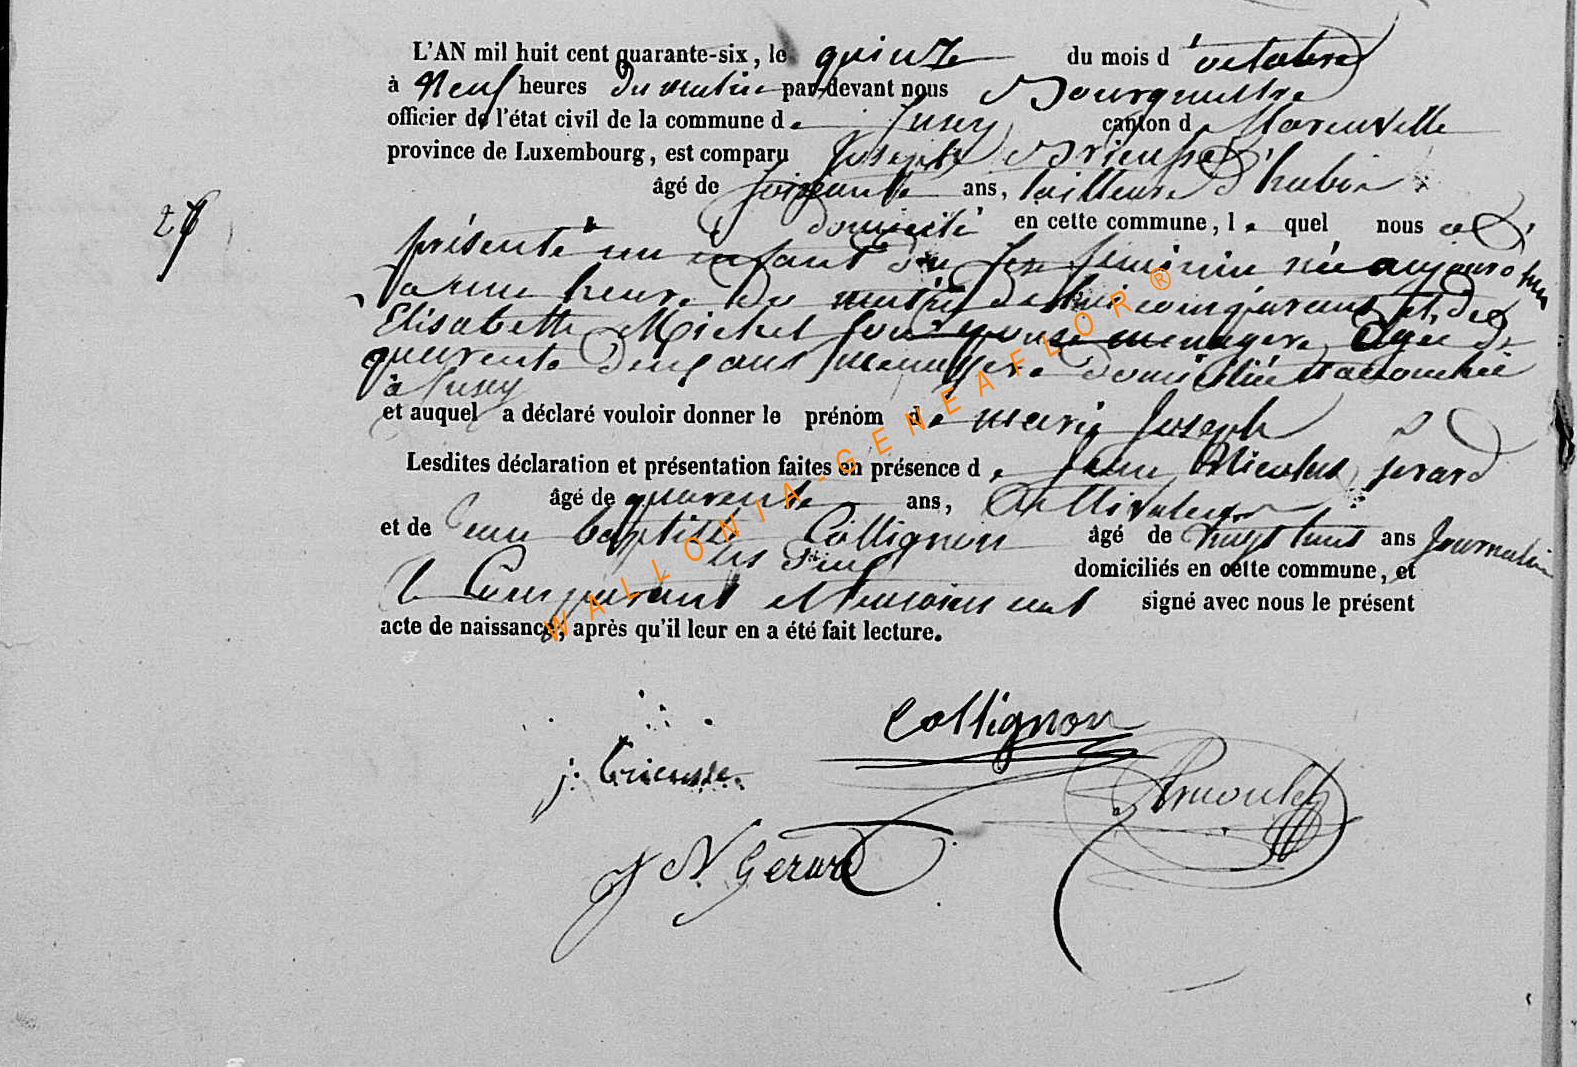 L'AN mil huit cent quarante-six, le quinze du mois d'octobre
à Neuf heures du matin par-devant nous Bourgmestre
officier de l'état civil de la commune de Jusey canton de
province de Luxembourg, est comparu Joseph Brieusse
âgé de soixante ans, tailleure d'habis
domicilié en cette commune, le quel nous a
27
présenté un enfant du sexe féminin née aujourd'hui
a une heure du matin de lui comparant et de
Elisabette Michel son épouse ménagere agée de
quarente deux ans domiciliée
à Jusey
et auquel a déclaré vouloir donner le prénom de marie Joseph
Lesdites déclaration et présentation faites en présence de Jean Nicolas Jerard
âgé de quarente ans, Cultivateur
et de Jean baptiste Collignon âgé de vingt huit ans Journalier
les deux domiciliés en cette commune, et
le Comparant et temoins ont signé avec nous le présent
acte de naissance, après qu'il leur en a été fait lecture.
WALLONIA-GENEAFLOR®
Collignon
j: brieusse
Arnould
J N Gerard